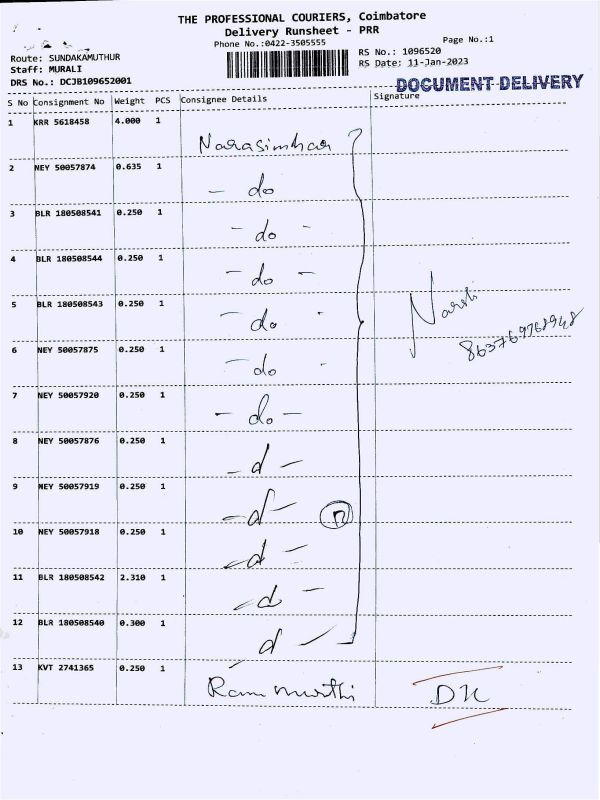 THE PROFESSIONAL COURIERS, Coimbatore
Delivery Runsheet - PRR
Phone No.:0422-3505555
Page No.:1
Route: SUNDAKAMUTHUR
RS No.: 1096520
Staff: MURALI
RS Date: 11-Jan-2023
DRS No.: DCJB109652001
DOCUMENT DELIVERY
S No Consignment No Weight PCS Consignee Details Signature
1 KRR 5618458 4.000 1
Narasimhan
2 NEY 50057874 0.635 1
- do
3 BLR 180508541 0.250 1
- do -
4 BLR 180508544 0.250 1
- do -
5 BLR 180508543 0.250 1
- do -
6 NEY 50057875 0.250 1
- do -
7 NEY 50057920 0.250 1
- do -
8 NEY 50057876 0.250 1
- d -
9 NEY 50057919 0.250 1
- d - 12
10 NEY 50057918 0.250 1
- d -
11 BLR 180508542 2.310 1
- d -
12 BLR 180508540 0.300 1
d -
13 KVT 2741365 0.250 1
Ram murthi